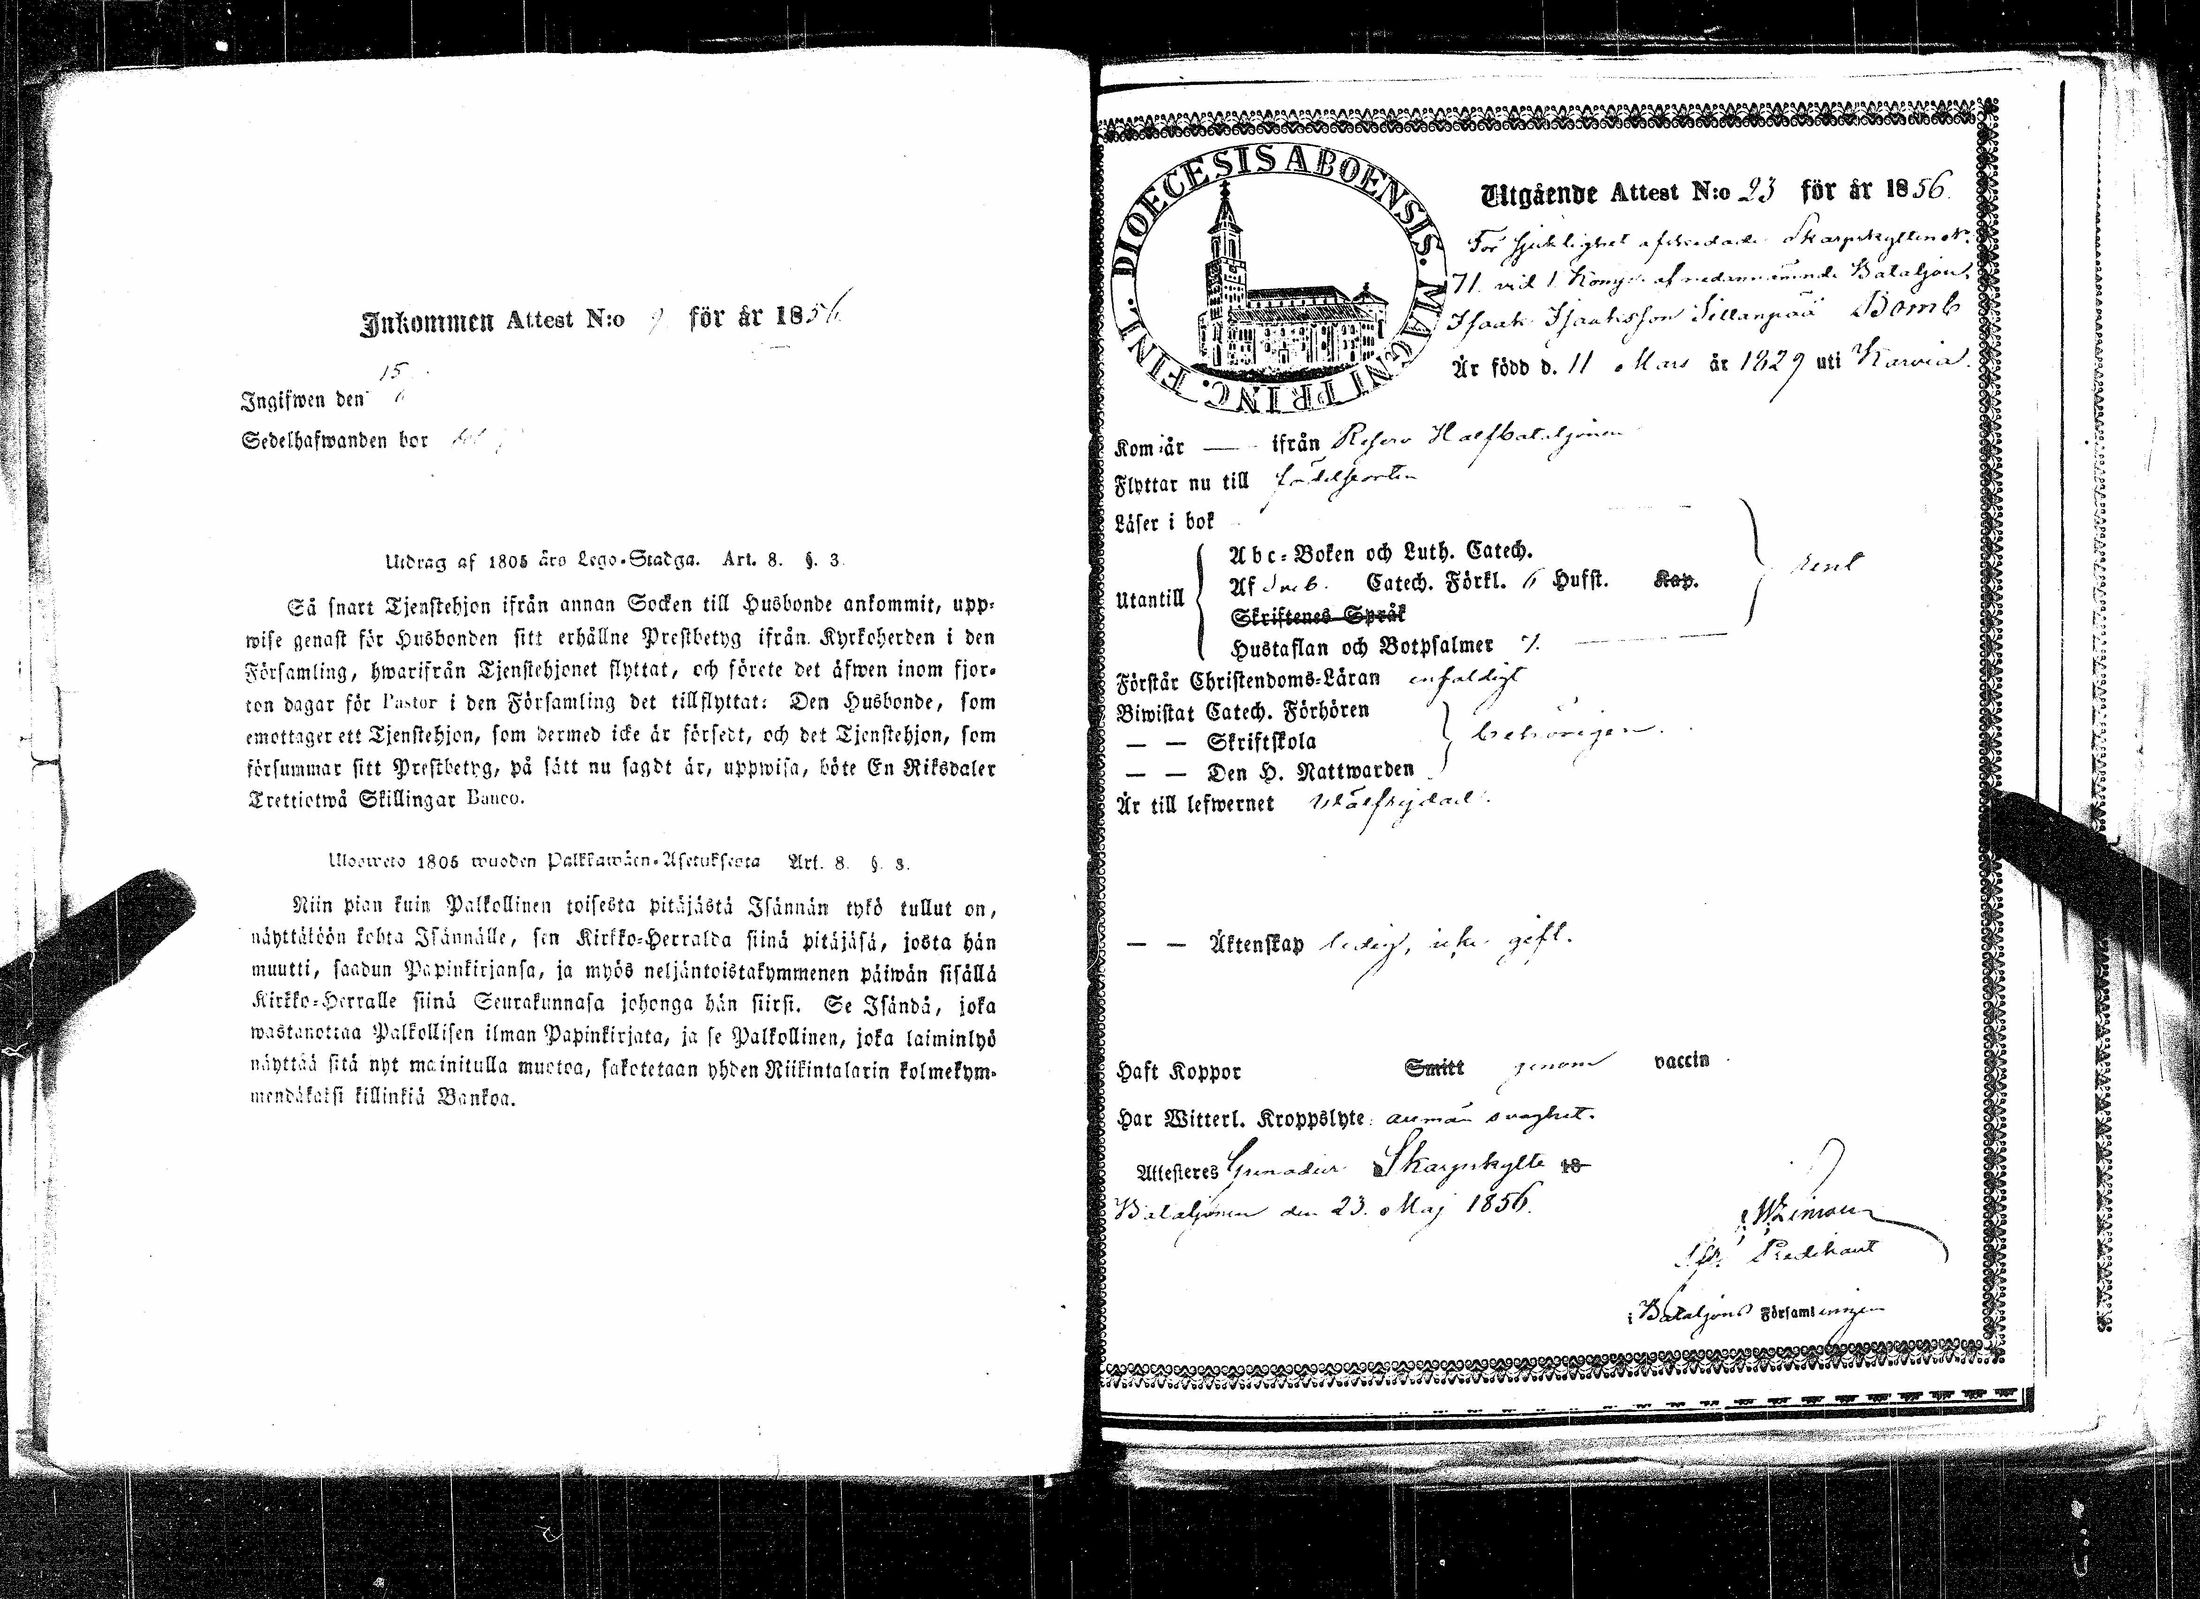 Inkommen Attest N:o 9 för år 1856
Ingifwen den 15
Sedelhafwanden bor
Utdrag af 1805 års Lego-Stadga. Art. 8. §. 3.
Så snart Tjenstehjon ifrån annan Socken till Husbonde ankommit, upp-
wise genast för Husbonden sitt erhållne Prestbetyg ifrån Kyrkoherden i den
Församling, hwarifrån Tjenstehjonet flyttat, och förete det äfwen inom fjor-
ton dagar för Pastor i den Församling det tillflyttat: Den Husbonde, som
emottager ett Tjenstehjon, som dermed icke är försedt, och det Tjenstehjon, som
försummar sitt Prestbetyg, på sätt nu sagdt är, uppwisa, böte En Riksdaler
Trettiotwå Skillingar Banco.
Ulosweto 1805 wuoden Palkkawäen-Asetuksesta Art. 8. §. 3.
Niin pian kuin Palkollinen toisesta pitäjästä Isännän tykö tullut on,
näyttäköön kohta Isännälle, sen Kirkko-Herralda siinä pitäjäsä, josta hän
muutti, saadun Papinkirjansa, ja myös neljäntoistakymmenen päiwän sisällä
Kirkko-Herralle siinä Seurakunnasa johonga hän siirsi. Se Isändä, joka
wastanottaa Palkollisen ilman Papinkirjata, ja se Palkollinen, joka laiminlyö
näyttää sitä nyt mainitulla muotoa, sakotetaan yhden Riikintalarin kolmekym-
mendäkaksi killinkiä Bankoa.
DIOECESIS ABOENSIS. MAGNI PRINC. FINL.
Utgående Attest N:o 23 för år 1856.
För sjuklighet afskedade Skarpskytten N:
71 vid 1 Komp. af nedannämnde Bataljon,
Isaak Isaaksson Sillanpää Bomb
Är född d. 11 Mars år 1829 uti Karvia.
Kom år — ifrån Reserv Halfbataljonen
Flyttar nu till födelseorten
Läser i bok
Utantill
Abc-Boken och Luth. Catech.
Af Catech. Förkl. 6 Hufst. Kap.
Skriftenes Språk
Hustaflan och Botpsalmer
rent
Förstår Christendoms-Läran enfaldigt
Biwistat Catech. Förhören
— — Skriftskola
— — Den H. Nattwarden
behörigen.
Är till lefwernet välfrejdad.
— — Äktenskap ledig, icke gift.
Haft Koppor Smitt genom vaccin
Har Witterl. Kroppslyte: allmän svaghet.
Attesteres Grenadier Skarpskytte 18
Bataljonen den 23 Maj 1856.
Predikant
Bataljons Församlingen